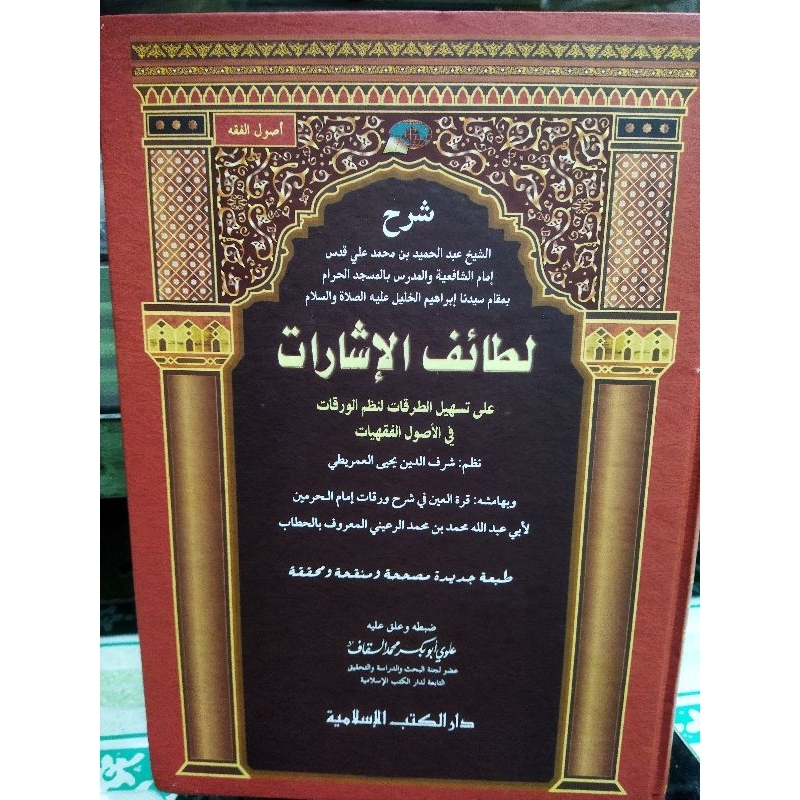 أصول الفقه
شرح
الشيخ عبد الحميد بن محمد علي قدس
إمام الشافعية والمدرس بالمسجد الحرام
بمقام سيدنا إبراهيم الخليل عليه الصلاة والسلام
لطائف الإشارات
على تسهيل الطرقات لنظم الورقات
في الأصول الفقهيات
نظم: شرف الدين يحيى العمريطي
وبهامشه: قرة العين في شرح ورقات إمام الحرمين
لأبي عبد الله محمد بن محمد الرعيني المعروف بالحطاب
طبعة جديدة مصححة ومنقحة ومحققة
ضبطه وعلق عليه
علوي أبو بكر محمد السقاف
عضو لجنة البحث والدراسة والتحقيق
التابعة لدار الكتب الإسلامية
دار الكتب الإسلامية